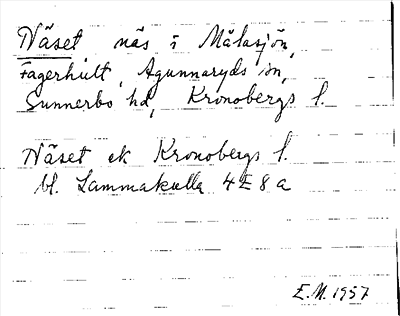 Näset näs i Målasjön,
Fagerhult, Agunnaryds sn,
Sunnerbo hd, Kronobergs l.
Näset ek Kronobergs l.
bl. Lammakulla 4E8a
E.M. 1957